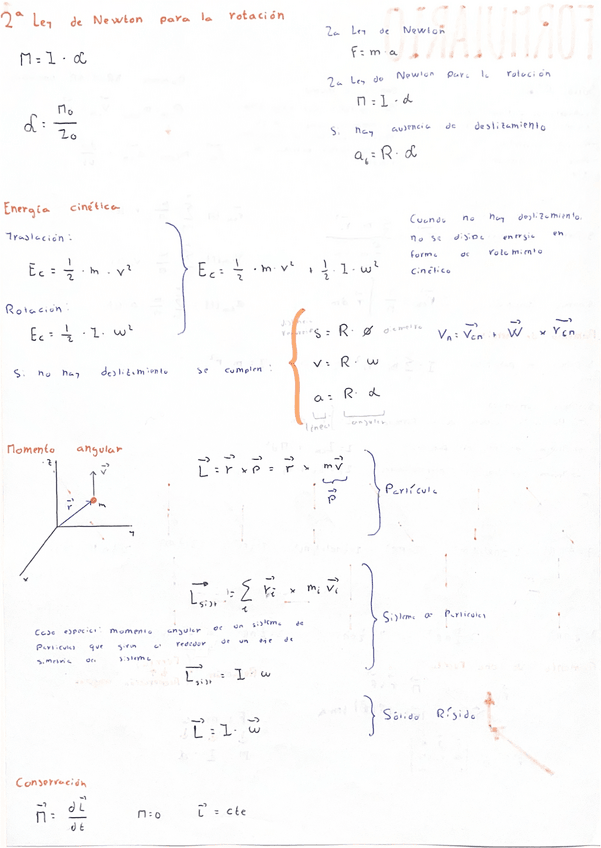 2ª Ley de Newton para la rotación
M = I · α
α = M₀ / I₀
2a Ley de Newton
F = m · a
2a Ley de Newton para la rotación
M = I · α
Si hay ausencia de deslizamiento
a = R · α
Energía cinética
Traslación:
Ec = 1/2 · m · v²
Ec = 1/2 · m · v² + 1/2 · I · w²
Rotación:
Ec = 1/2 · I · w²
Cuando no hay deslizamiento
no se disipa energía en
forma de rozamiento
cinético
Si no hay deslizamiento se cumplen:
s = R · ø
v = R · w
a = R · α
lineal angular
Momento angular
z
v
r
m
y
x
L = r x p = r x mv
p
Partícula
L sist = Σ i ri x mi vi
Sistema de Partículas
Caso especial: momento angular de un sistema de
partículas que giran al rededor de un eje de
simetría del sistema
L sist = I · w
L = I · w
Sólido Rígido
Conservación
M = dL / dt M = 0 L = cte